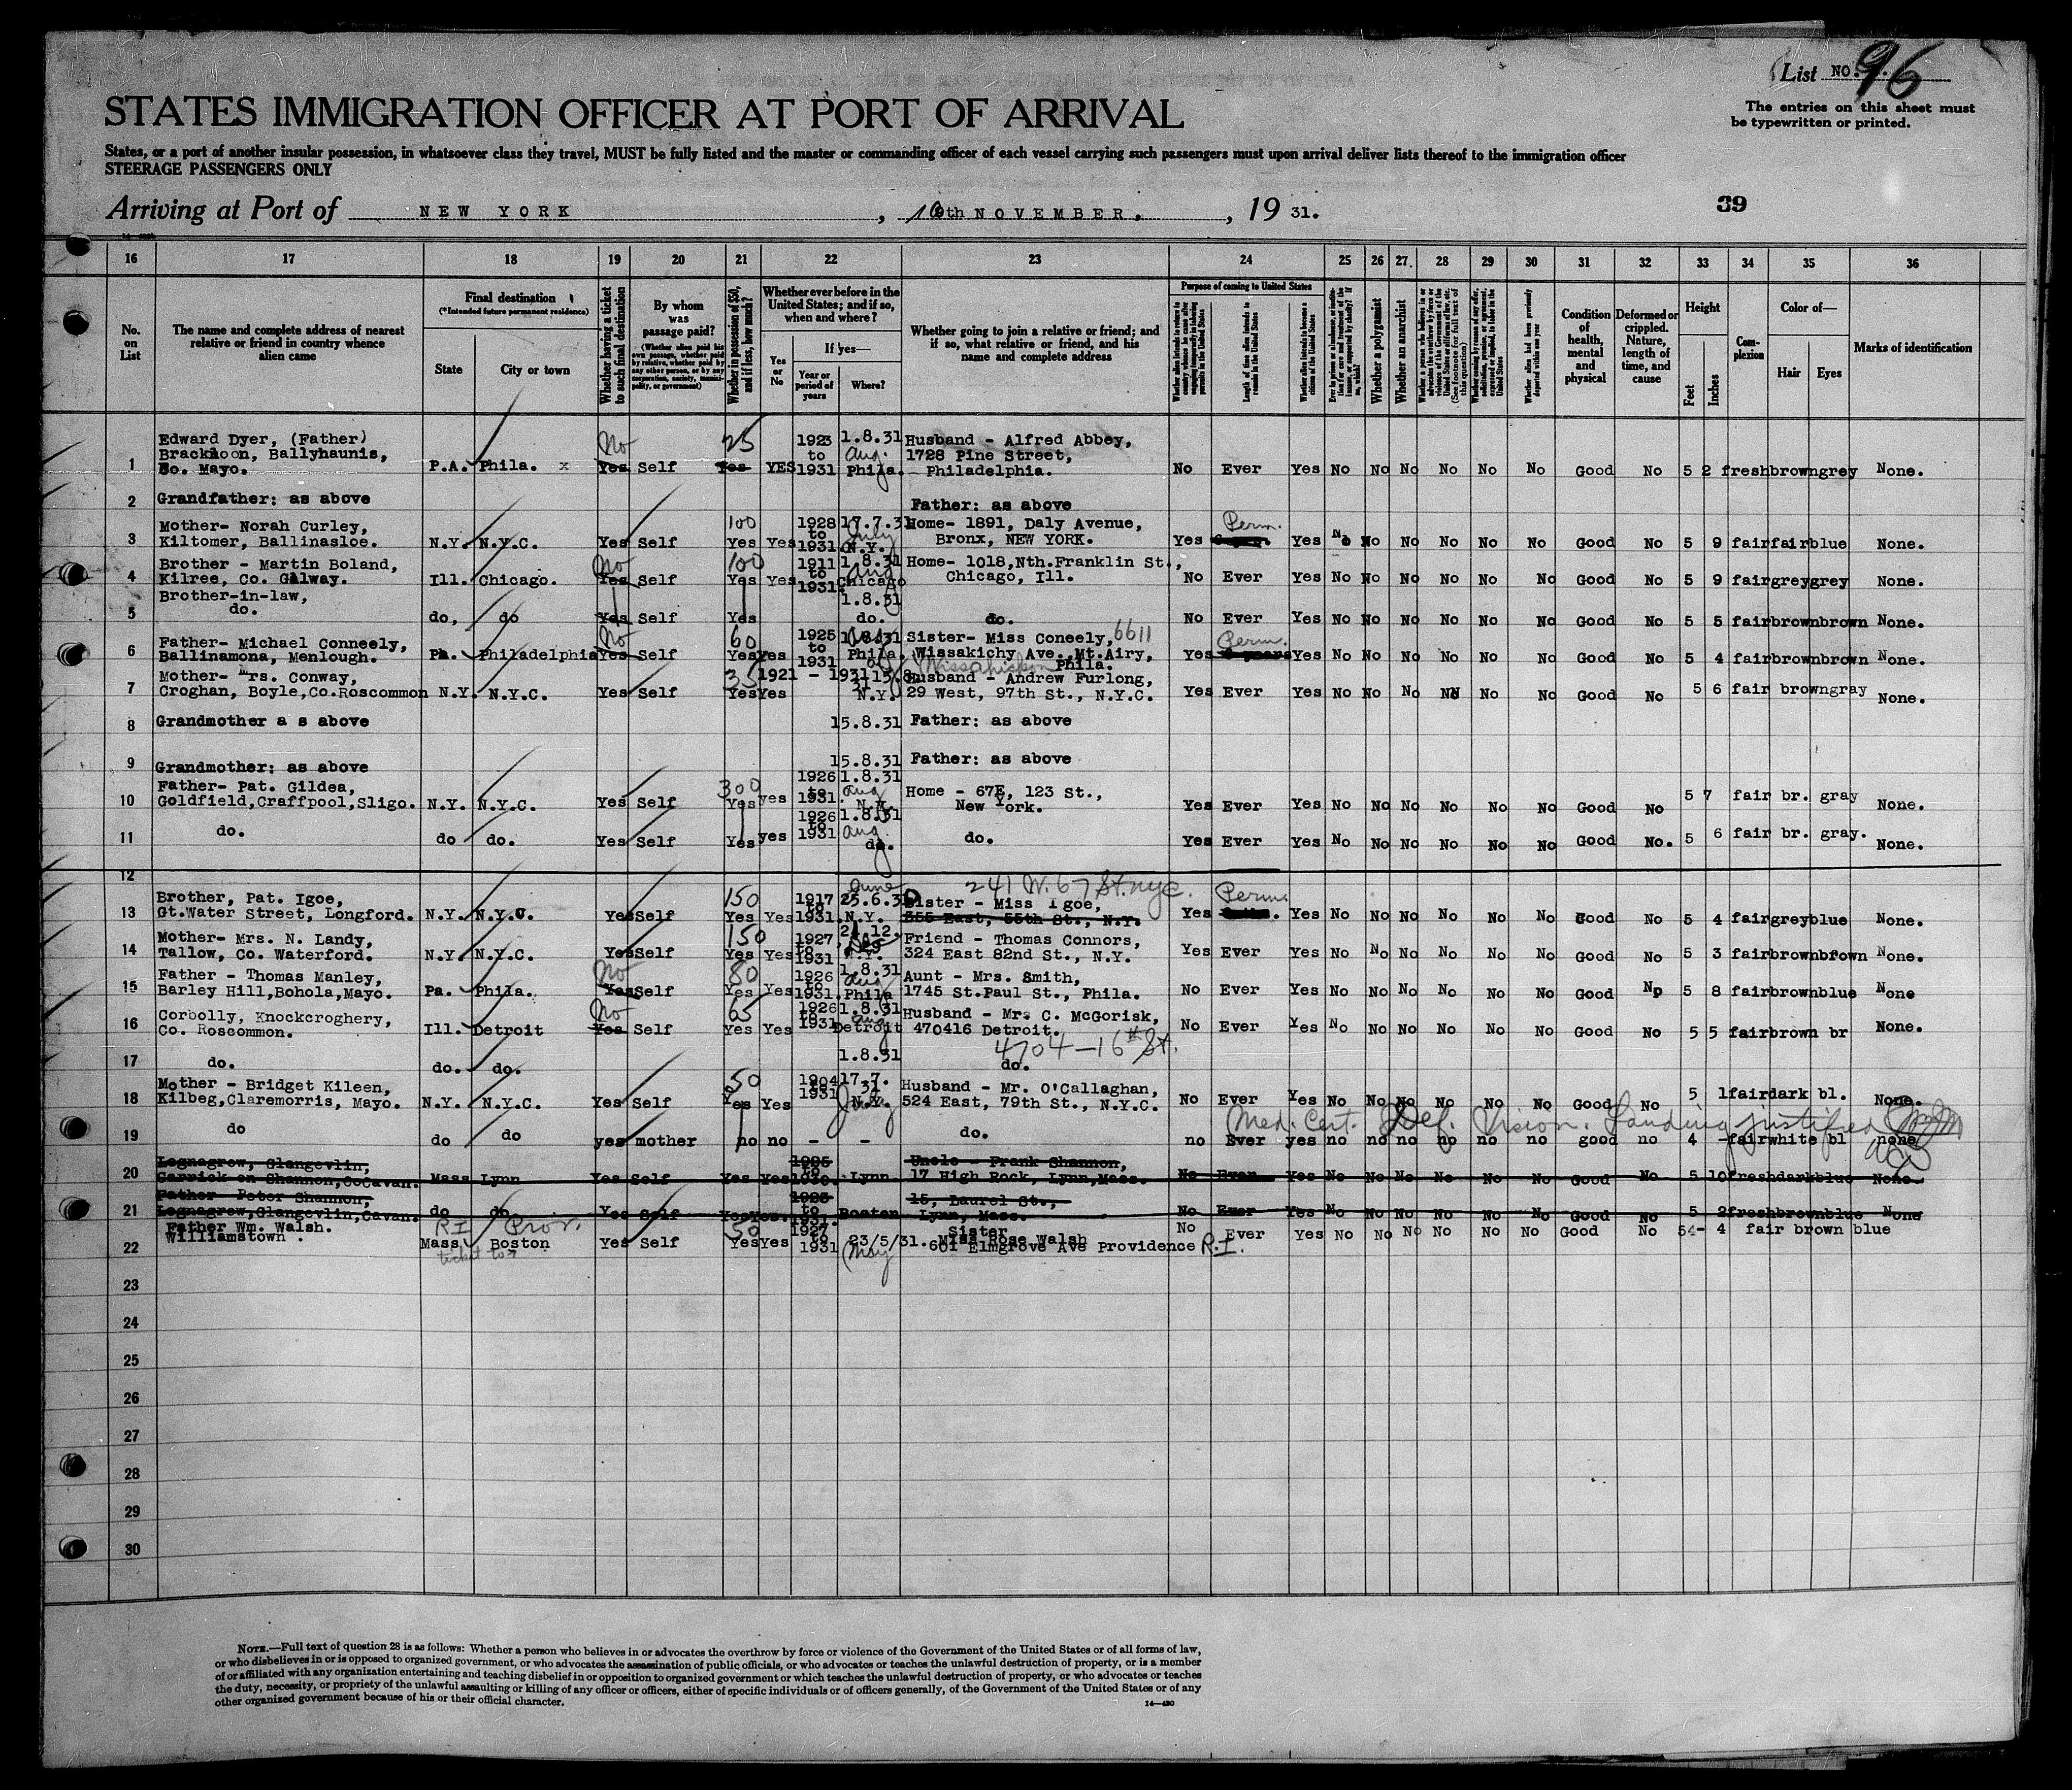 List NO. 96
The entries on this sheet must
be typewritten or printed.
STATES IMMIGRATION OFFICER AT PORT OF ARRIVAL
States, or a port of another insular possession, in whatsoever class they travel, MUST be fully listed and the master or commanding officer of each vessel carrying such passengers must upon arrival deliver lists thereof to the immigration officer
STEERAGE PASSENGERS ONLY
Arriving at Port of NEW YORK, 16th NOVEMBER, 1931.
39
16 17 18 19 20 21 22 23 24 25 26 27. 28 29 30 31 32 33 34 35 36
No. on List
The name and complete address of nearest relative or friend in country whence alien came
Final destination
(*Intended future permanent residence)
State
City or town
Whether having a ticket to such final destination
By whom was passage paid?
(Whether alien paid his own passage, whether paid by relative, whether paid by any other person, or by any corporation, society, municipality, or government)
Whether in possession of $50, and if less, how much?
Whether ever before in the United States; and if so, when and where?
Yes or No
If yes—
Year or period of years
Where?
Whether going to join a relative or friend; and if so, what relative or friend, and his name and complete address
Purpose of coming to United States
Length of time alien intends to remain in the United States
Whether alien intends to become a citizen of the United States
Whether a polygamist
Whether an anarchist
Condition of health, mental and physical
Deformed or crippled. Nature, length of time, and cause
Height
Feet
Inches
Complexion
Color of—
Hair
Eyes
Marks of identification
1 Edward Dyer, (Father)
Brackloon, Ballyhaunis,
Co. Mayo. P.A. Phila. x No Yes Self 25 Yes YES 1923 to 1931 1.8.31 Aug. Phila. Husband - Alfred Abbey,
1728 Pine Street,
Philadelphia. No Ever Yes No No No No No No Good No 5 2 fresh brown grey None.
2 Grandfather: as above Father: as above
3 Mother- Norah Curley,
Kiltomer, Ballinasloe. N.Y. N.Y.C. Yes Self 100 Yes Yes 1928 to 1931 17.7.31 July N.Y. Home- 1891, Daly Avenue,
Bronx, NEW YORK. Yes Perm. Yes No No No No No No Good No 5 9 fair fair blue None.
4 Brother - Martin Boland,
Kilree, Co. Galway. Ill. Chicago. No Yes Self 100 Yes Yes 1911 to 1931. 1.8.31 Aug Chicago Home- 1018, Nth. Franklin St.,
Chicago, Ill. No Ever Yes No No No No No No Good No 5 9 fair grey grey None.
5 Brother-in-law,
do. do, do Yes Self Yes 1.8.31 do. do. No Ever Yes No No No No No No Good No 5 5 fair brown brown None.
6 Father- Michael Conneely,
Ballinamona, Menlough. Pa. Philadelphia No Yes Self 60 Yes Yes 1925 to 1931 1.8.31 Phila. Sister- Miss Coneely, 6611
Wissakichy Ave., Mt. Airy,
Wissahickon Phila. Yes Perm. Yes No No No No No No Good No 5 4 fair brown brown None.
7 Mother- Mrs. Conway,
Croghan, Boyle, Co. Roscommon N.Y. N.Y.C. Yes Self 35 Yes Yes 1921 - 1931 N.Y. Husband - Andrew Furlong,
29 West, 97th St., N.Y.C. Yes Ever Yes No No No No No No Good No 5 6 fair brown gray None.
8 Grandmother a s above 15.8.31 Father: as above
9 Grandmother: as above 15.8.31 Father: as above
10 Father- Pat. Gildea,
Goldfield, Craffpool, Sligo. N.Y. N.Y.C. Yes Self 300 Yes yes 1926 to 1931. 1.8.31 Aug N.Y. Home - 67E, 123 St.,
New York. Yes Ever Yes No No No No No No Good No 5 7 fair br. gray None.
11 do. do do. Yes Self Yes yes 1926 to 1931 1.8.31 Aug. do. do. Yes Ever Yes No No No No No No Good No. 5 6 fair br. gray. None.
12
13 Brother, Pat. Igoe,
Gt. Water Street, Longford. N.Y. N.Y.C. Yes Self 150 Yes Yes 1917 to 1931. June 25.6.30 N.Y. 241 W. 67 St. nyc.
Sister - Miss Igoe,
355 East, 55th St., N.Y. Yes Perm. Yes No No No No No No Good No 5 4 fair grey blue None.
14 Mother- Mrs. N. Landy,
Tallow, Co. Waterford. N.Y. N.Y.C. Yes Self 150 Yes Yes 1927 to 1931 N.Y. Friend - Thomas Connors,
324 East 82nd St., N.Y. Yes Ever Yes No No No No No No Good No 5 3 fair brown brown None.
15 Father - Thomas Manley,
Barley Hill, Bohola, Mayo. Pa. Phila. No Yes Self 80 Yes Yes 1926 to 1931. 1.8.31 Aug Phila Aunt - Mrs. Smith,
1745 St. Paul St., Phila. No Ever Yes No No No No No No Good No 5 8 fair brown blue None
16 Corbolly, Knockcroghery,
Co. Roscommon. Ill. Detroit No Yes Self 65 Yes Yes 1926 to 1931 1.8.31 Aug Detroit Husband - Mr. C. McGorisk,
470416 Detroit. No Ever Yes No No No No No No Good No 5 5 fair brown br None.
4704-16th St.
17 do. do. do. 1.8.31 do.
18 Mother - Bridget Kileen,
Kilbeg, Claremorris, Mayo. N.Y. N.Y.C. Yes Self 50 Yes Yes 1904 to 1931 17.7.31 July N.Y. Husband - Mr. O'Callaghan,
524 East, 79th St., N.Y.C. No Ever Yes No No No No No No Good No 5 1 fair dark bl. None.
Med. Cert. Def. Vision. Landing justified
19 do do do yes mother no no - - do. no Ever yes no no no no no no good no 4 - fair white bl none
20 Legnagrow, Glangevlin,
Carrick on Shannon, Co Cavan. Mass Lynn Yes Self Yes Yes to 1930. Lynn. Uncle - Frank Shannon,
17 High Rock, Lynn, Mass. No Ever Yes No No No No No No Good No 5 10 fresh dark blue None.
21 Father- Peter Shannon,
Legnagrow, Glangevlin, Cavan. do do. Yes Self Yes Yes. to 1931. Boston 15, Laurel St.,
Lynn, Mass. No Ever Yes No No No No No No Good No 5 2 fresh brown blue None
22 Father Wm. Walsh.
Williamstown. R.I. Prov.
Mass. Boston ticket to Yes Self 50 Yes Yes 1927 to 1931 23/5/31. (May Sister
Miss Rose Walsh
601 Elmgrove Ave Providence R.I. No Ever Yes No No No No No No Good No 5 4 fair brown blue
23
24
25
26
27
28
29
30
NOTE.—Full text of question 28 is as follows: Whether a person who believes in or advocates the overthrow by force or violence of the Government of the United States or of all forms of law,
or who disbelieves in or is opposed to organized government, or who advocates the assassination of public officials, or who advocates or teaches the unlawful destruction of property, or is a member
of or affiliated with any organization entertaining and teaching disbelief in or opposition to organized government or which teaches the unlawful destruction of property, or who advocates or teaches
the duty, necessity, or propriety of the unlawful assaulting or killing of any officer or officers, either of specific individuals or of officers generally, of the Government of the United States or of any
other organized government because of his or their official character.
14—430